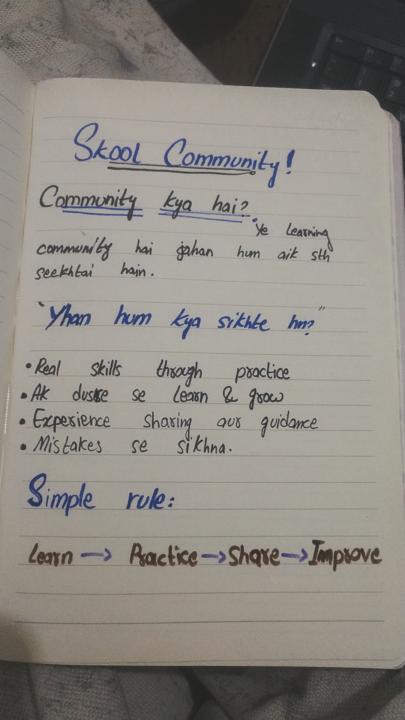 Skool Community!
Community kya hai?
Ye learning
community hai jahan hum aik sth
seekhtai hain.
"Yhan hum kya sikhte hn?"
• Real skills through practice
• Ak dusre se learn & grow
• Experience sharing aur guidance
• Mistakes se sikhna.
Simple rule:
Learn → Practice → Share → Improve